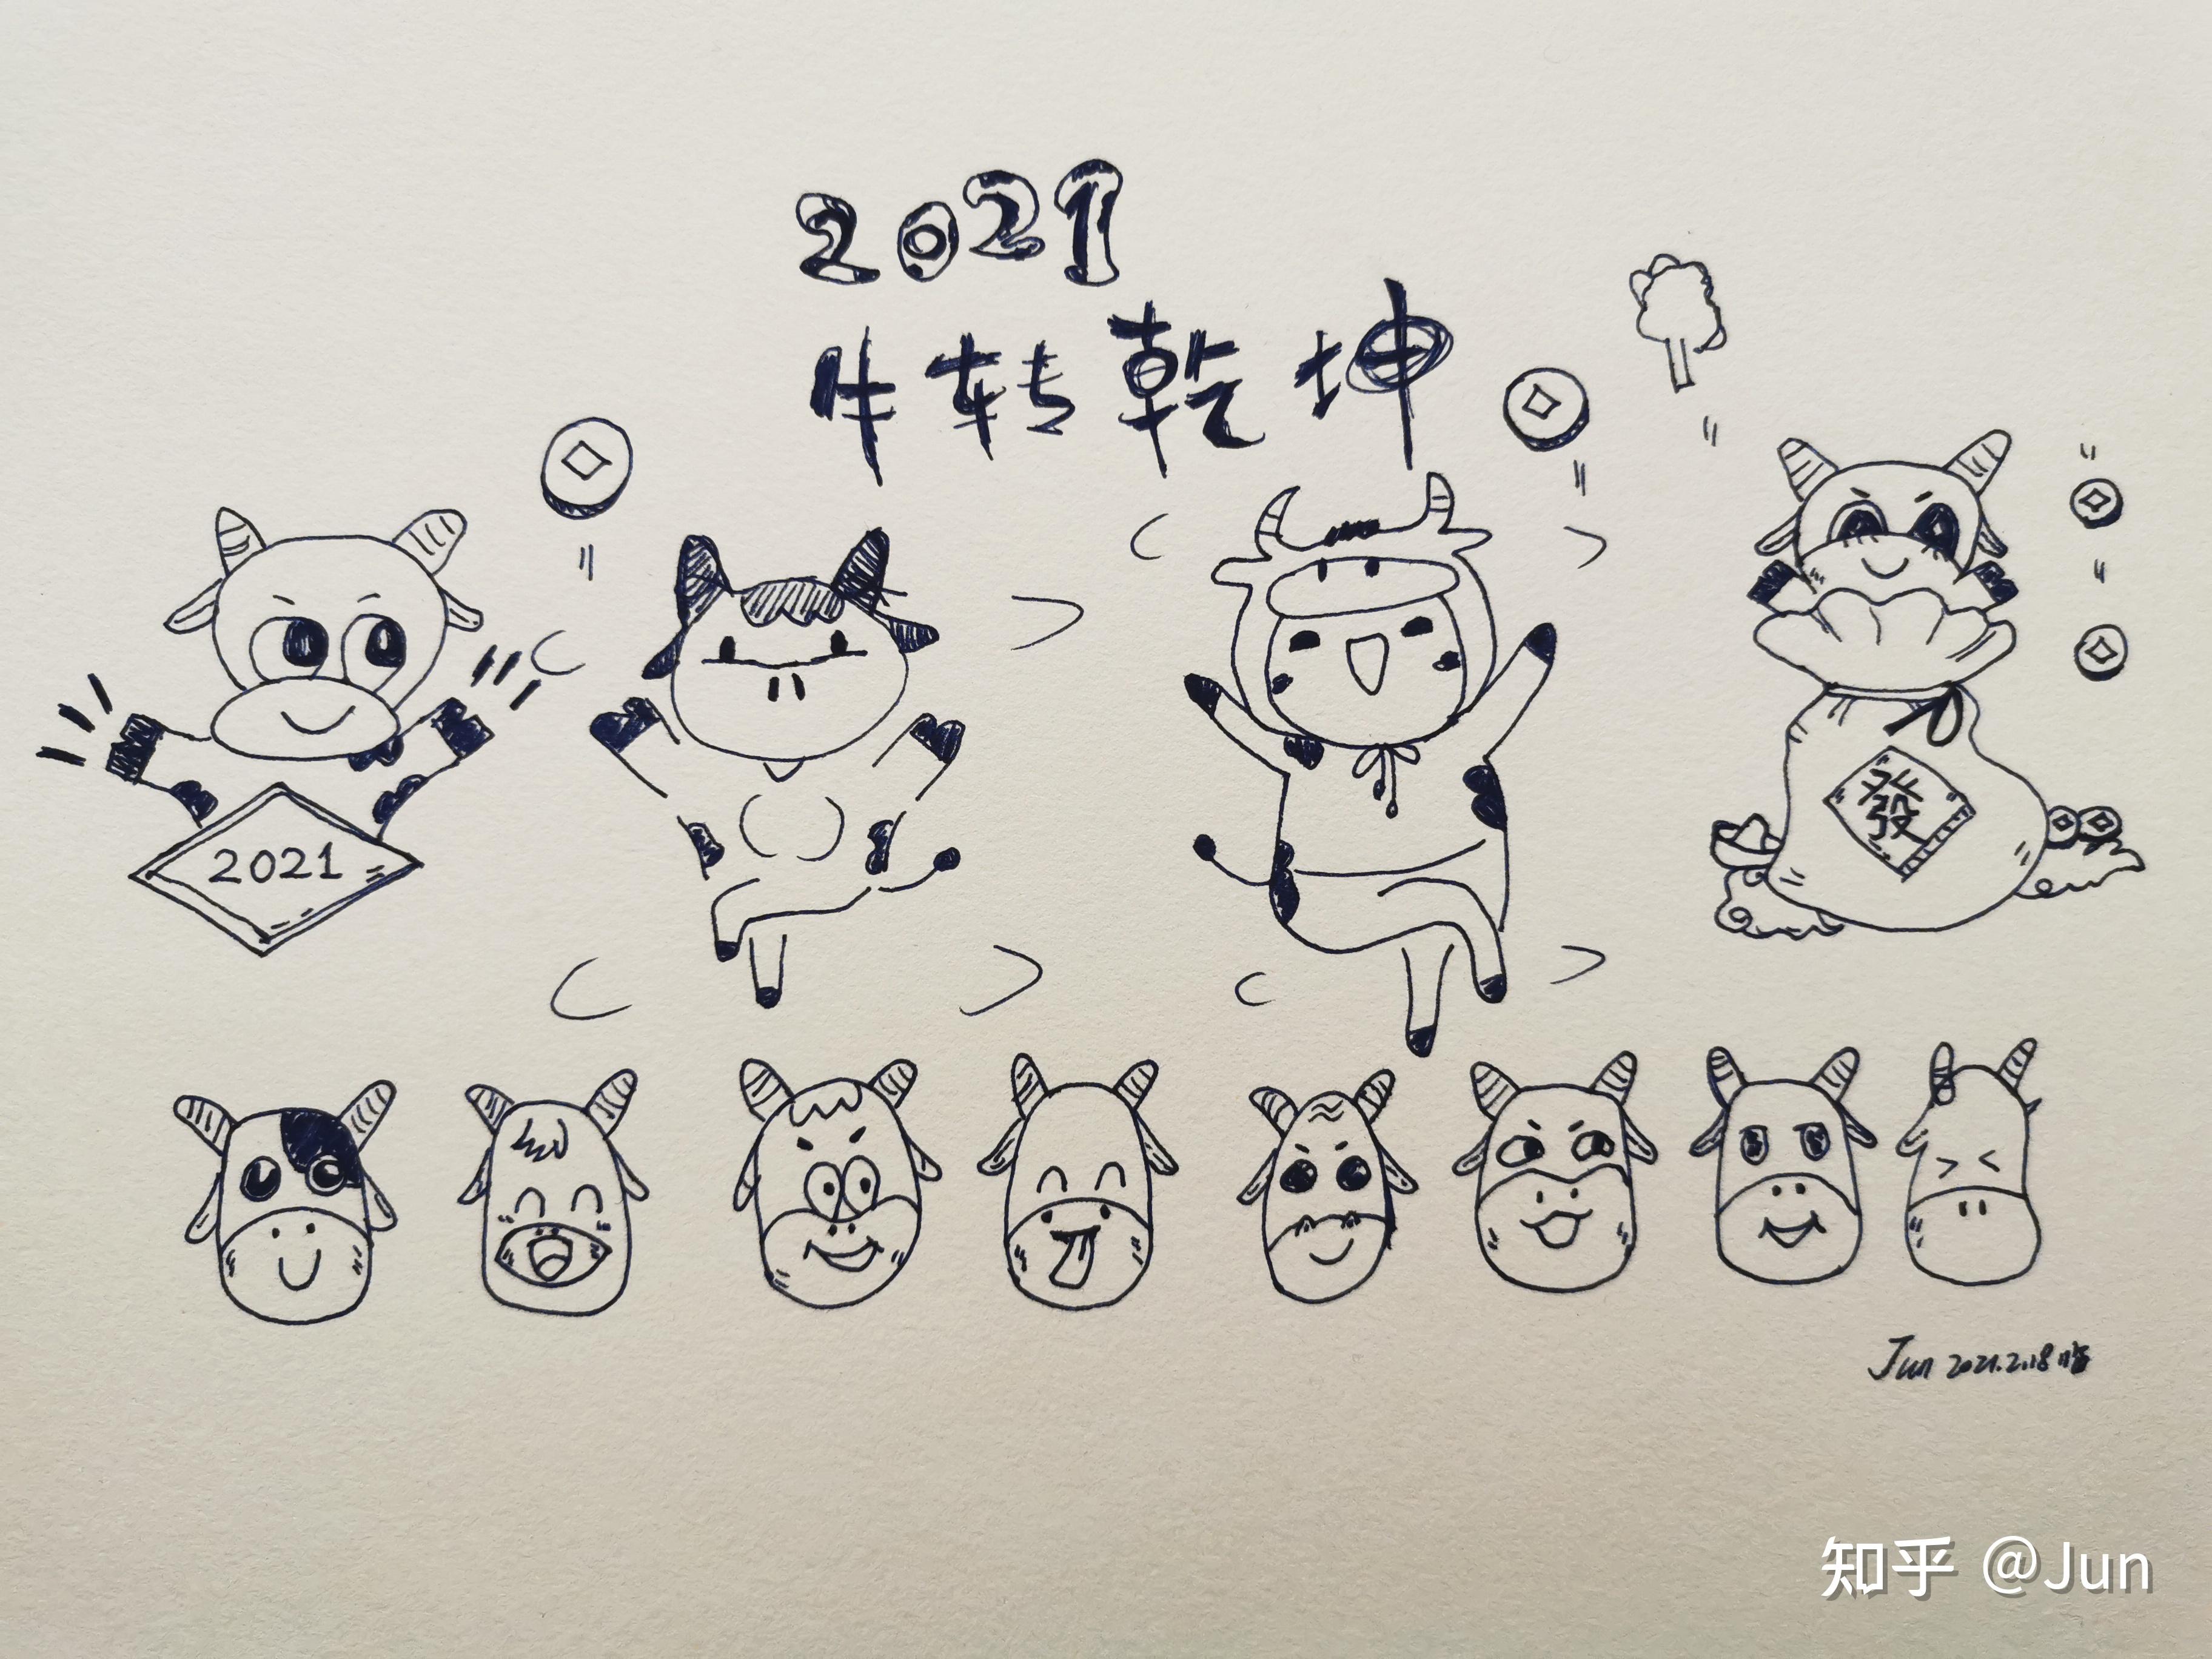 2021
牛转乾坤
2021
發
Jun 2021.2.18临
知乎 @Jun